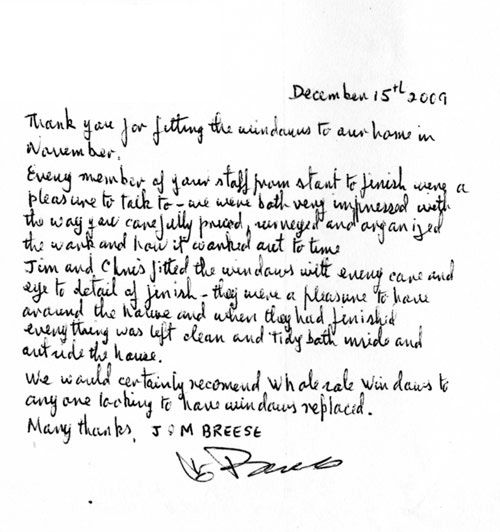 December 15th 2009
Thank you for fitting the windows to our home in
November.
Every member of your staff from start to finish were a
pleasure to talk to - we were both very impressed with
the way you carefully priced, surveyed and organized
the work and how it worked out to time
Jim and Chris fitted the windows with every care and
eye to detail of finish - they were a pleasure to have
around the house and when they had finish'd
everything was left clean and tidy both inside and
outside the house.
We would certainly recomend Wholesale Windows to
any one looking to have windows replaced.
Many thanks, J & M BREESE